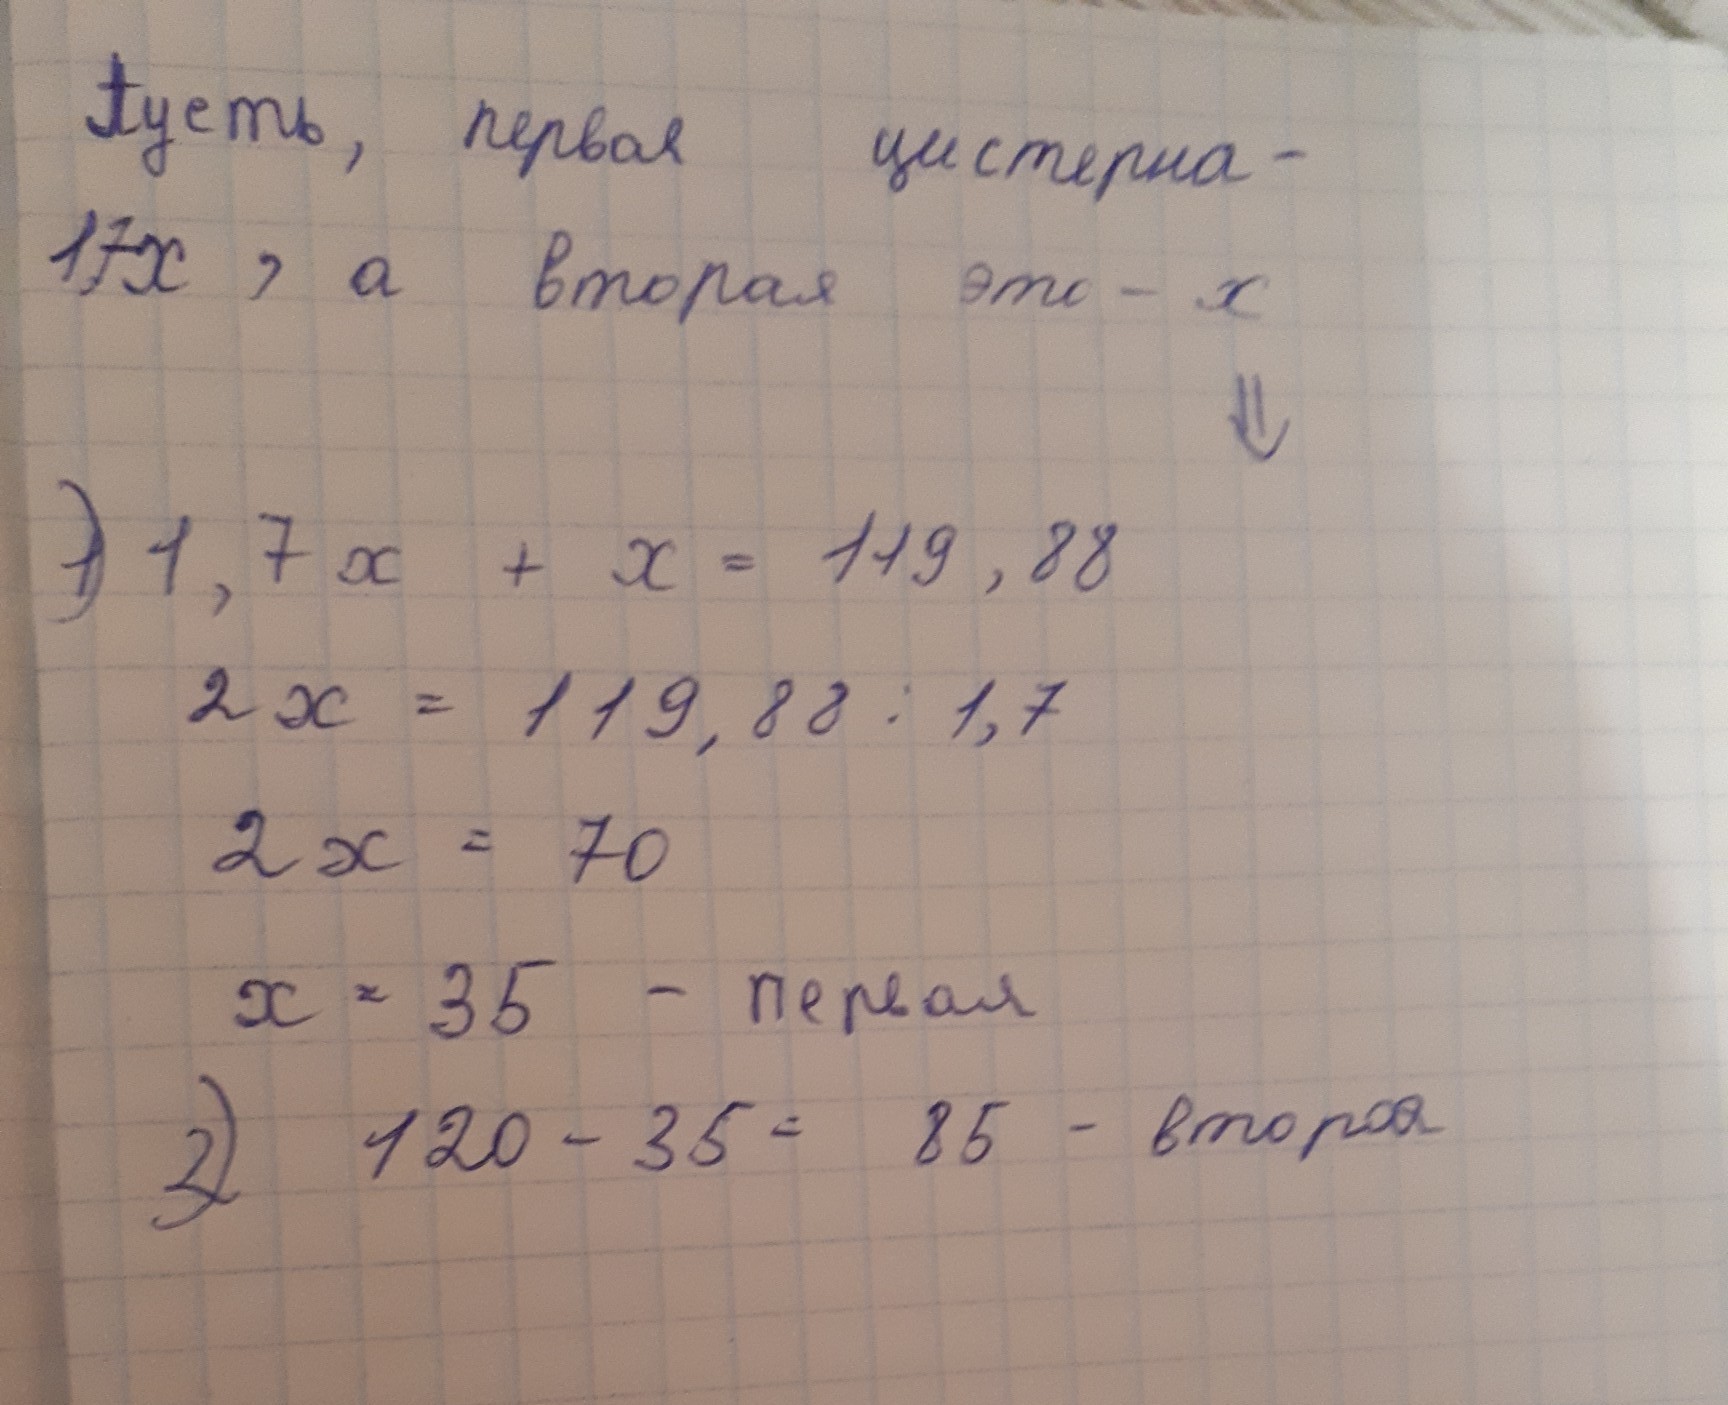 Пусть, первая цистерна -
1,7x, а вторая это - x
⇓
1) 1,7x + x = 119,88
2x = 119,88 : 1,7
2x = 70
x = 35 - первая
2) 120 - 35 = 85 - вторая